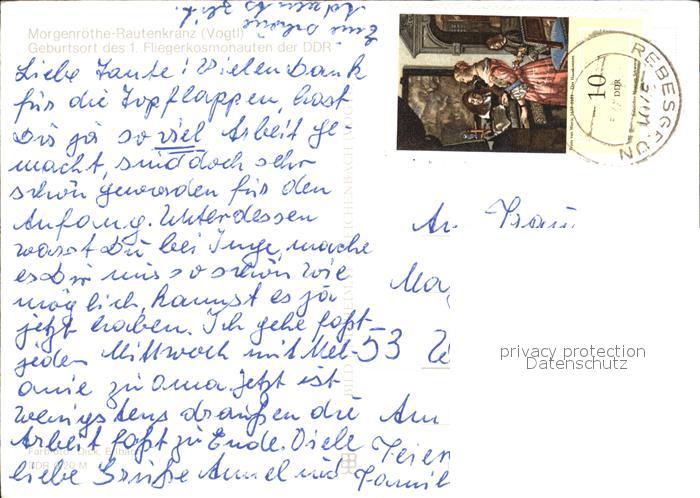 Morgenröthe-Rautenkranz (Vogtl)
Geburtsort des 1. Fliegerkosmonauten der DDR
Liebe Tante! Vielen Dank
für die Topflappen, hast
Dir ja so viel Arbeit ge-
macht, sind doch sehr
schön geworden für den
Anfang. Unterdessen
warst Du bei Inge, mache
es Dir nur so schön wie
möglich, kannst es ja
jetzt haben. Ich gehe fast
jeden Mittwoch mit Mel-
anie zu Oma. Jetzt ist
wenigstens draußen die
Arbeit fast zu Ende. Viele
liebe Grüße Annel und Famil
10
DDR
REBESGRÜN
An Frau
Ma
53
Am
Feier
privacy protection
Datenschutz